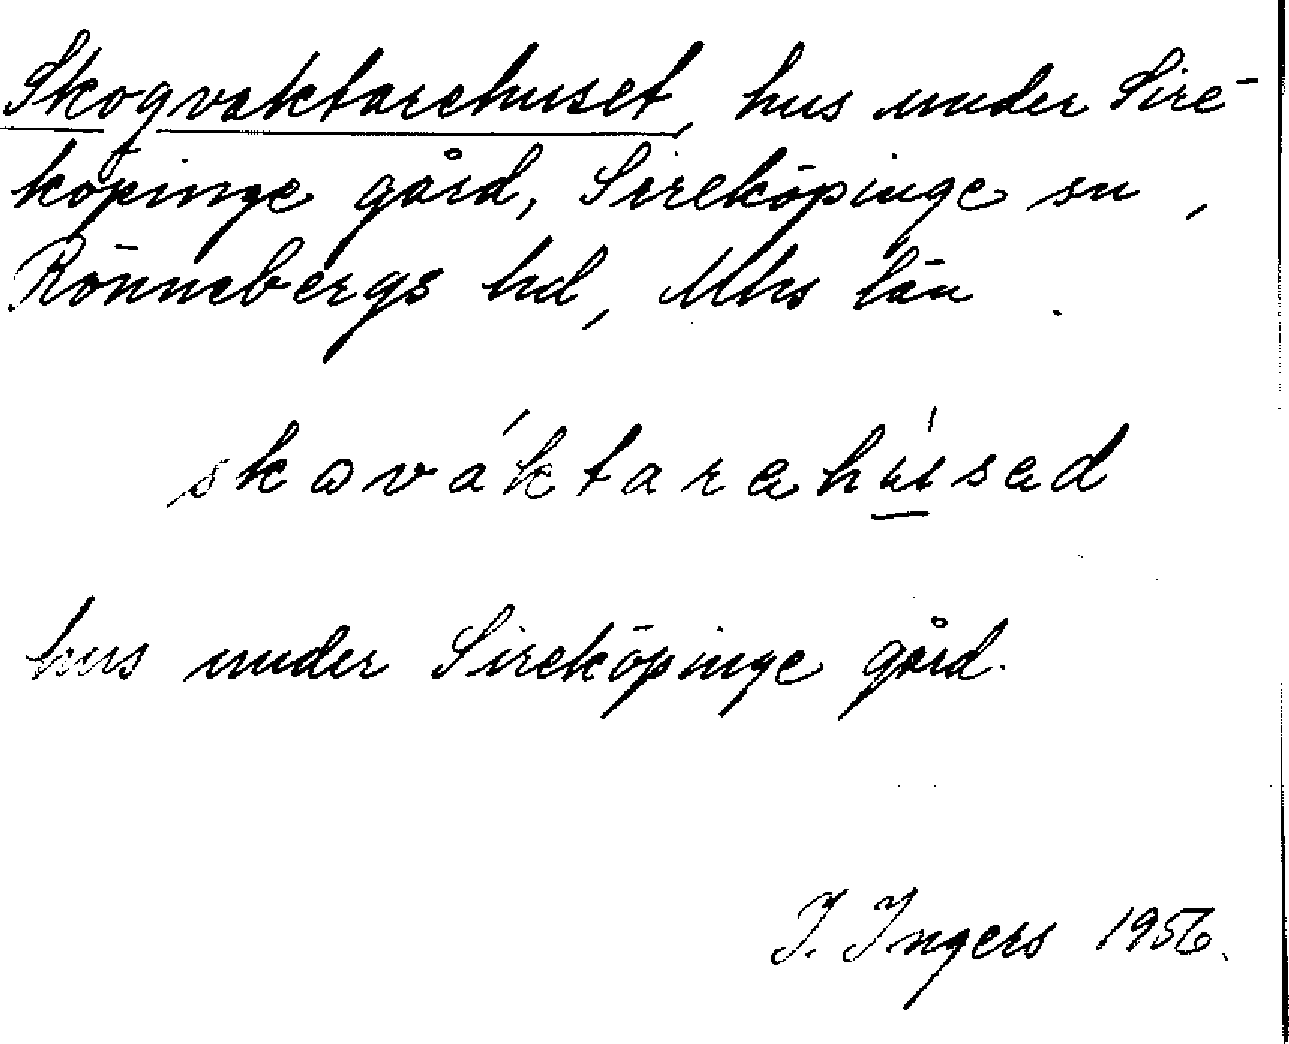 Skogvaktarehuset, hus under Sire-
köpinge gård, Sireköpinge sn,
Rönnebergs hd, Mhs län.
skɷváktarahúsad
hus under Sireköpinge gård.
I. Ingers 1956.